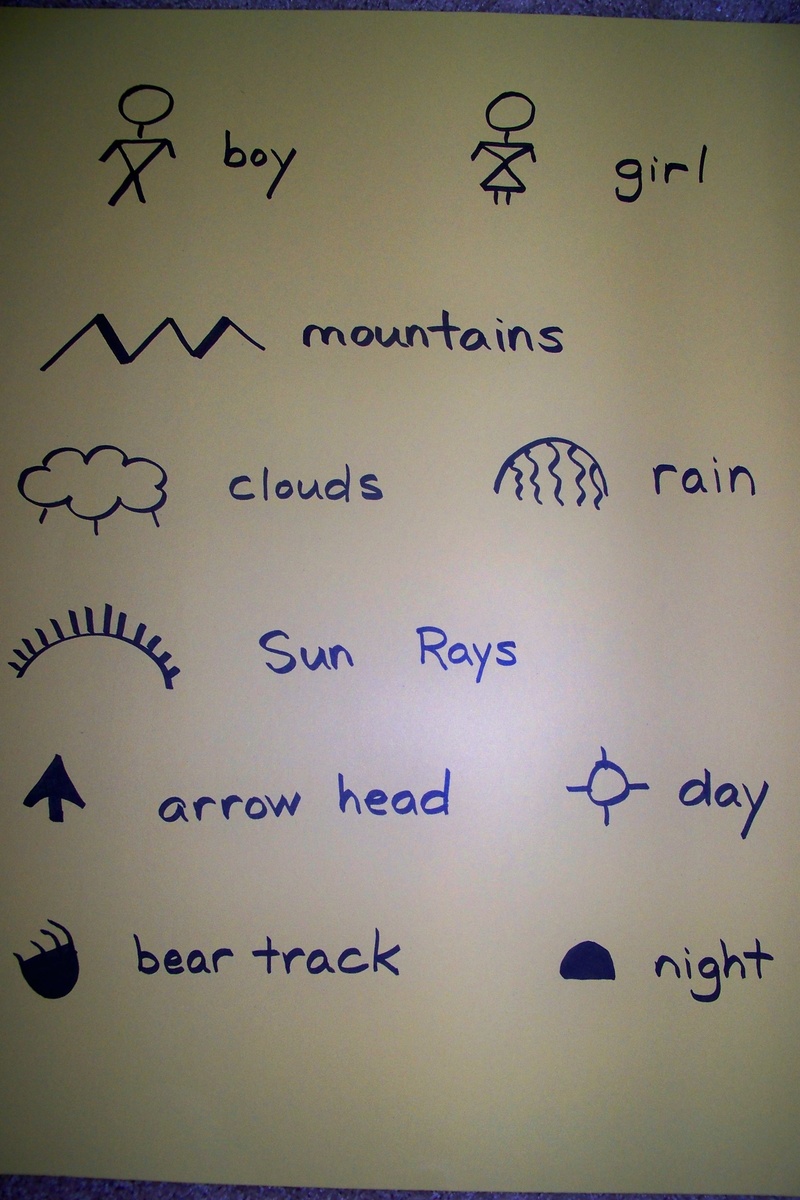 boy girl
mountains
clouds rain
Sun Rays
arrow head day
bear track night